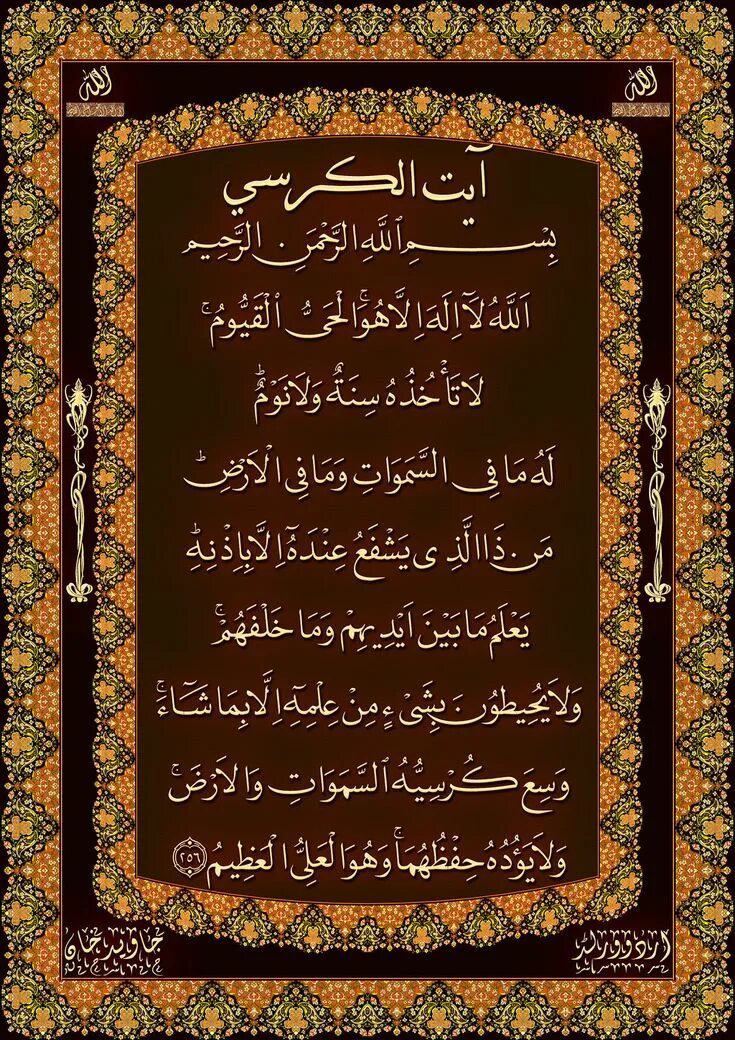 الله
الله
آیت الکرسي
بِسْمِ ٱللَّهِ الرَّحْمَنِ الرَّحِيمِ
اَللَّهُ لَآ اِلَهَ اِلَّا هُوَۚ الْحَىُّ الْقَيُّومُۚ
لَا تَأْخُذُهُ سِنَةٌ وَلَا نَوْمٌؕ
لَهُ مَا فِى السَّمَوَاتِ وَمَا فِى الْاَرْضِؕ
مَن ذَا الَّذِى يَشْفَعُ عِنْدَهُٓ اِلَّا بِاِذْنِهِؕ
يَعْلَمُ مَا بَيْنَ اَيْدِيهِمْ وَمَا خَلْفَهُمْۚ
وَلَا يُحِيطُونَ بِشَىْءٍ مِنْ عِلْمِهِٓ اِلَّا بِمَا شَآءَۚ
وَسِعَ كُرْسِيُّهُ السَّمَوَاتِ وَالْاَرْضَۚ
وَلَا يَؤُدُهُ حِفْظُهُمَاۚ وَهُوَ الْعَلِىُّ الْعَظِيمُ ٢٥٦
اردو ورلڈ
جاوید خان